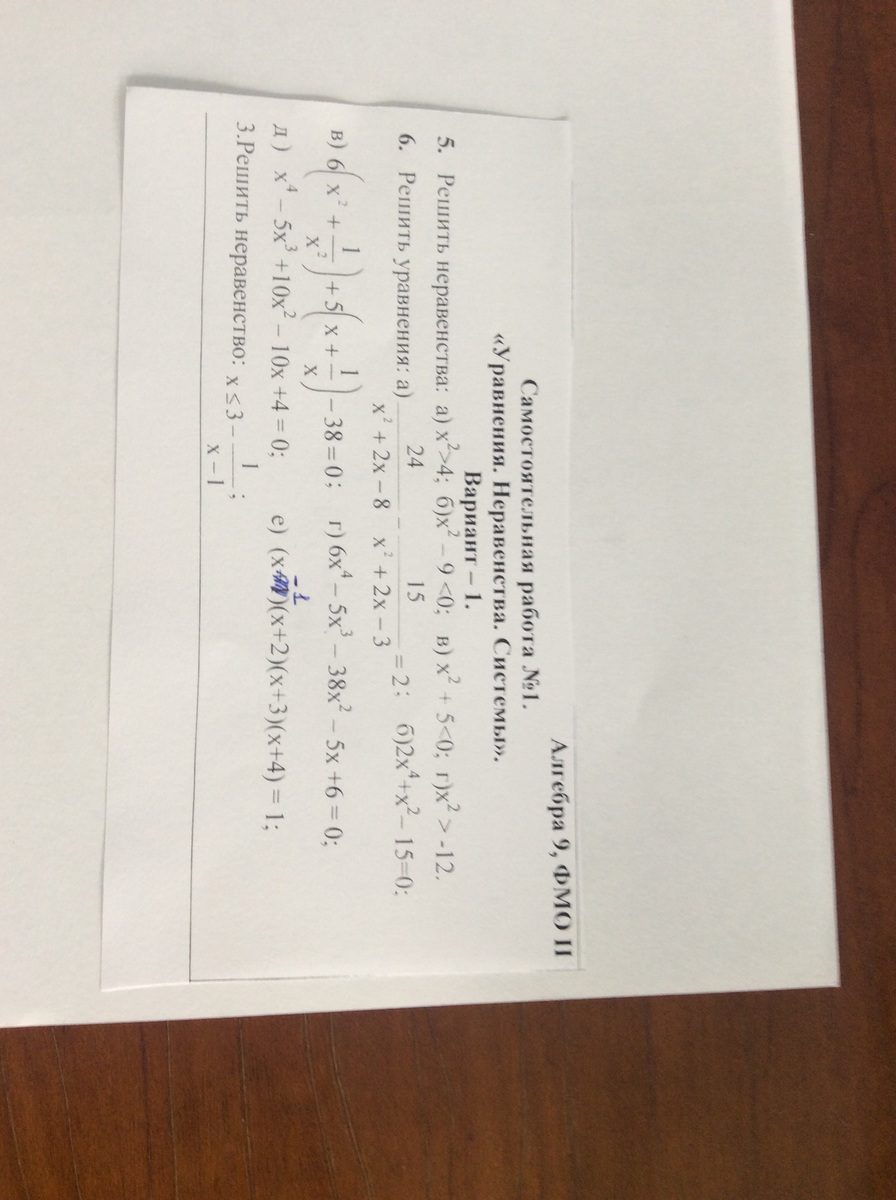 Алгебра 9, ФМО II
Самостоятельная работа №1.
«Уравнения. Неравенства. Системы».
Вариант – 1.
5. Решить неравенства: а) x²>4; б)x² – 9 <0; в) x² + 5<0; г)x² > -12.
6. Решить уравнения: а) 24/(x² + 2x – 8) – 15/(x² + 2x – 3) = 2; б)2x⁴+x²– 15=0;
в) 6(x² + 1/x²) + 5(x + 1/x) – 38 = 0; г) 6x⁴ – 5x³ – 38x² – 5x +6 = 0;
д) x⁴ – 5x³ +10x² – 10x +4 = 0; е) (x–1)(x+2)(x+3)(x+4) = 1;
3.Решить неравенство: x ≤ 3 – 1/(x – 1);